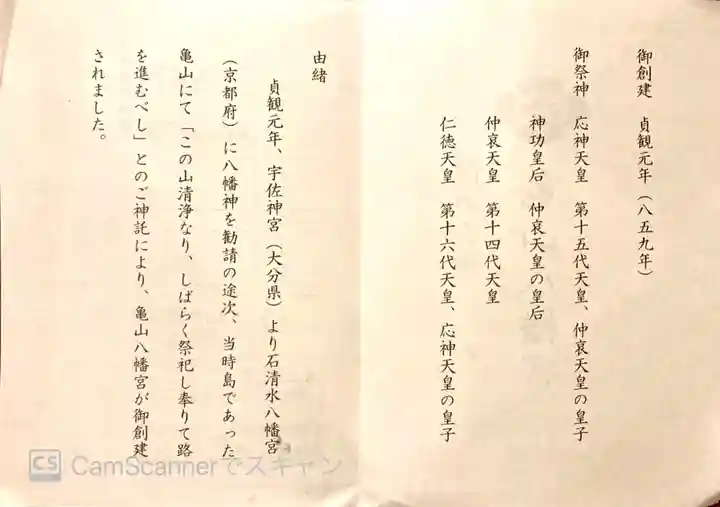 御創建　貞観元年（八五九年）
御祭神　応神天皇　第十五代天皇、仲哀天皇の皇子
神功皇后　仲哀天皇の皇后
仲哀天皇　第十四代天皇
仁徳天皇　第十六代天皇、応神天皇の皇子
由緒
貞観元年、宇佐神宮（大分県）より石清水八幡宮
（京都府）に八幡神を勧請の途次、当時島であった
亀山にて「この山清浄なり、しばらく祭祀し奉りて路
を進むべし」とのご神託により、亀山八幡宮が御創建
されました。
CS CamScannerでスキャン